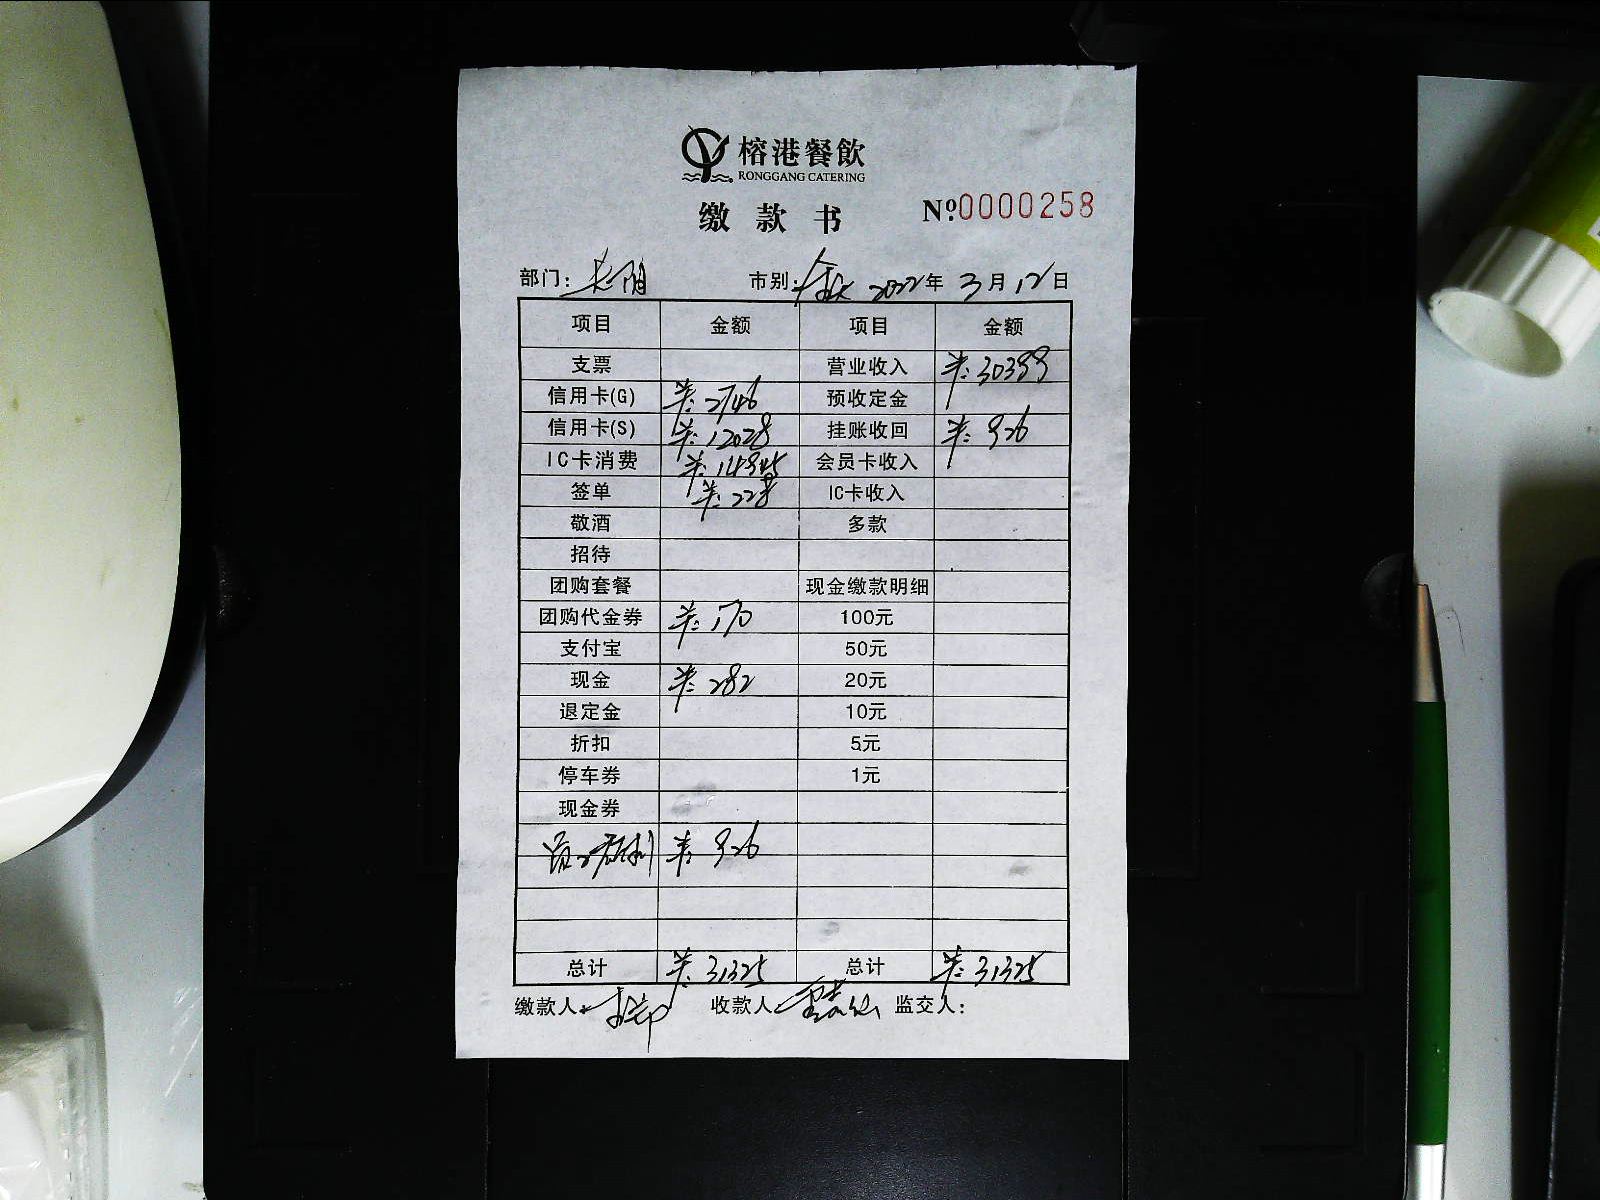 榕港餐飲
RONGGANG CATERING
缴款书 Nº:0000258
部门: 市别: 2022年3月12日
项目 金额 项目 金额
支票 营业收入 ¥:30399
信用卡(G) ¥:2746 预收定金
信用卡(S) ¥:12028 挂账收回 ¥:926
IC卡消费 ¥:14945 会员卡收入
签单 ¥:228 IC卡收入
敬酒 多款
招待
团购套餐 现金缴款明细
团购代金券 ¥:170 100元
支付宝 50元
现金 ¥:282 20元
退定金 10元
折扣 5元
停车券 1元
现金券
员工福利 ¥:926
总计 ¥:31325 总计 ¥:31325
缴款人: 收款人: 监交人: